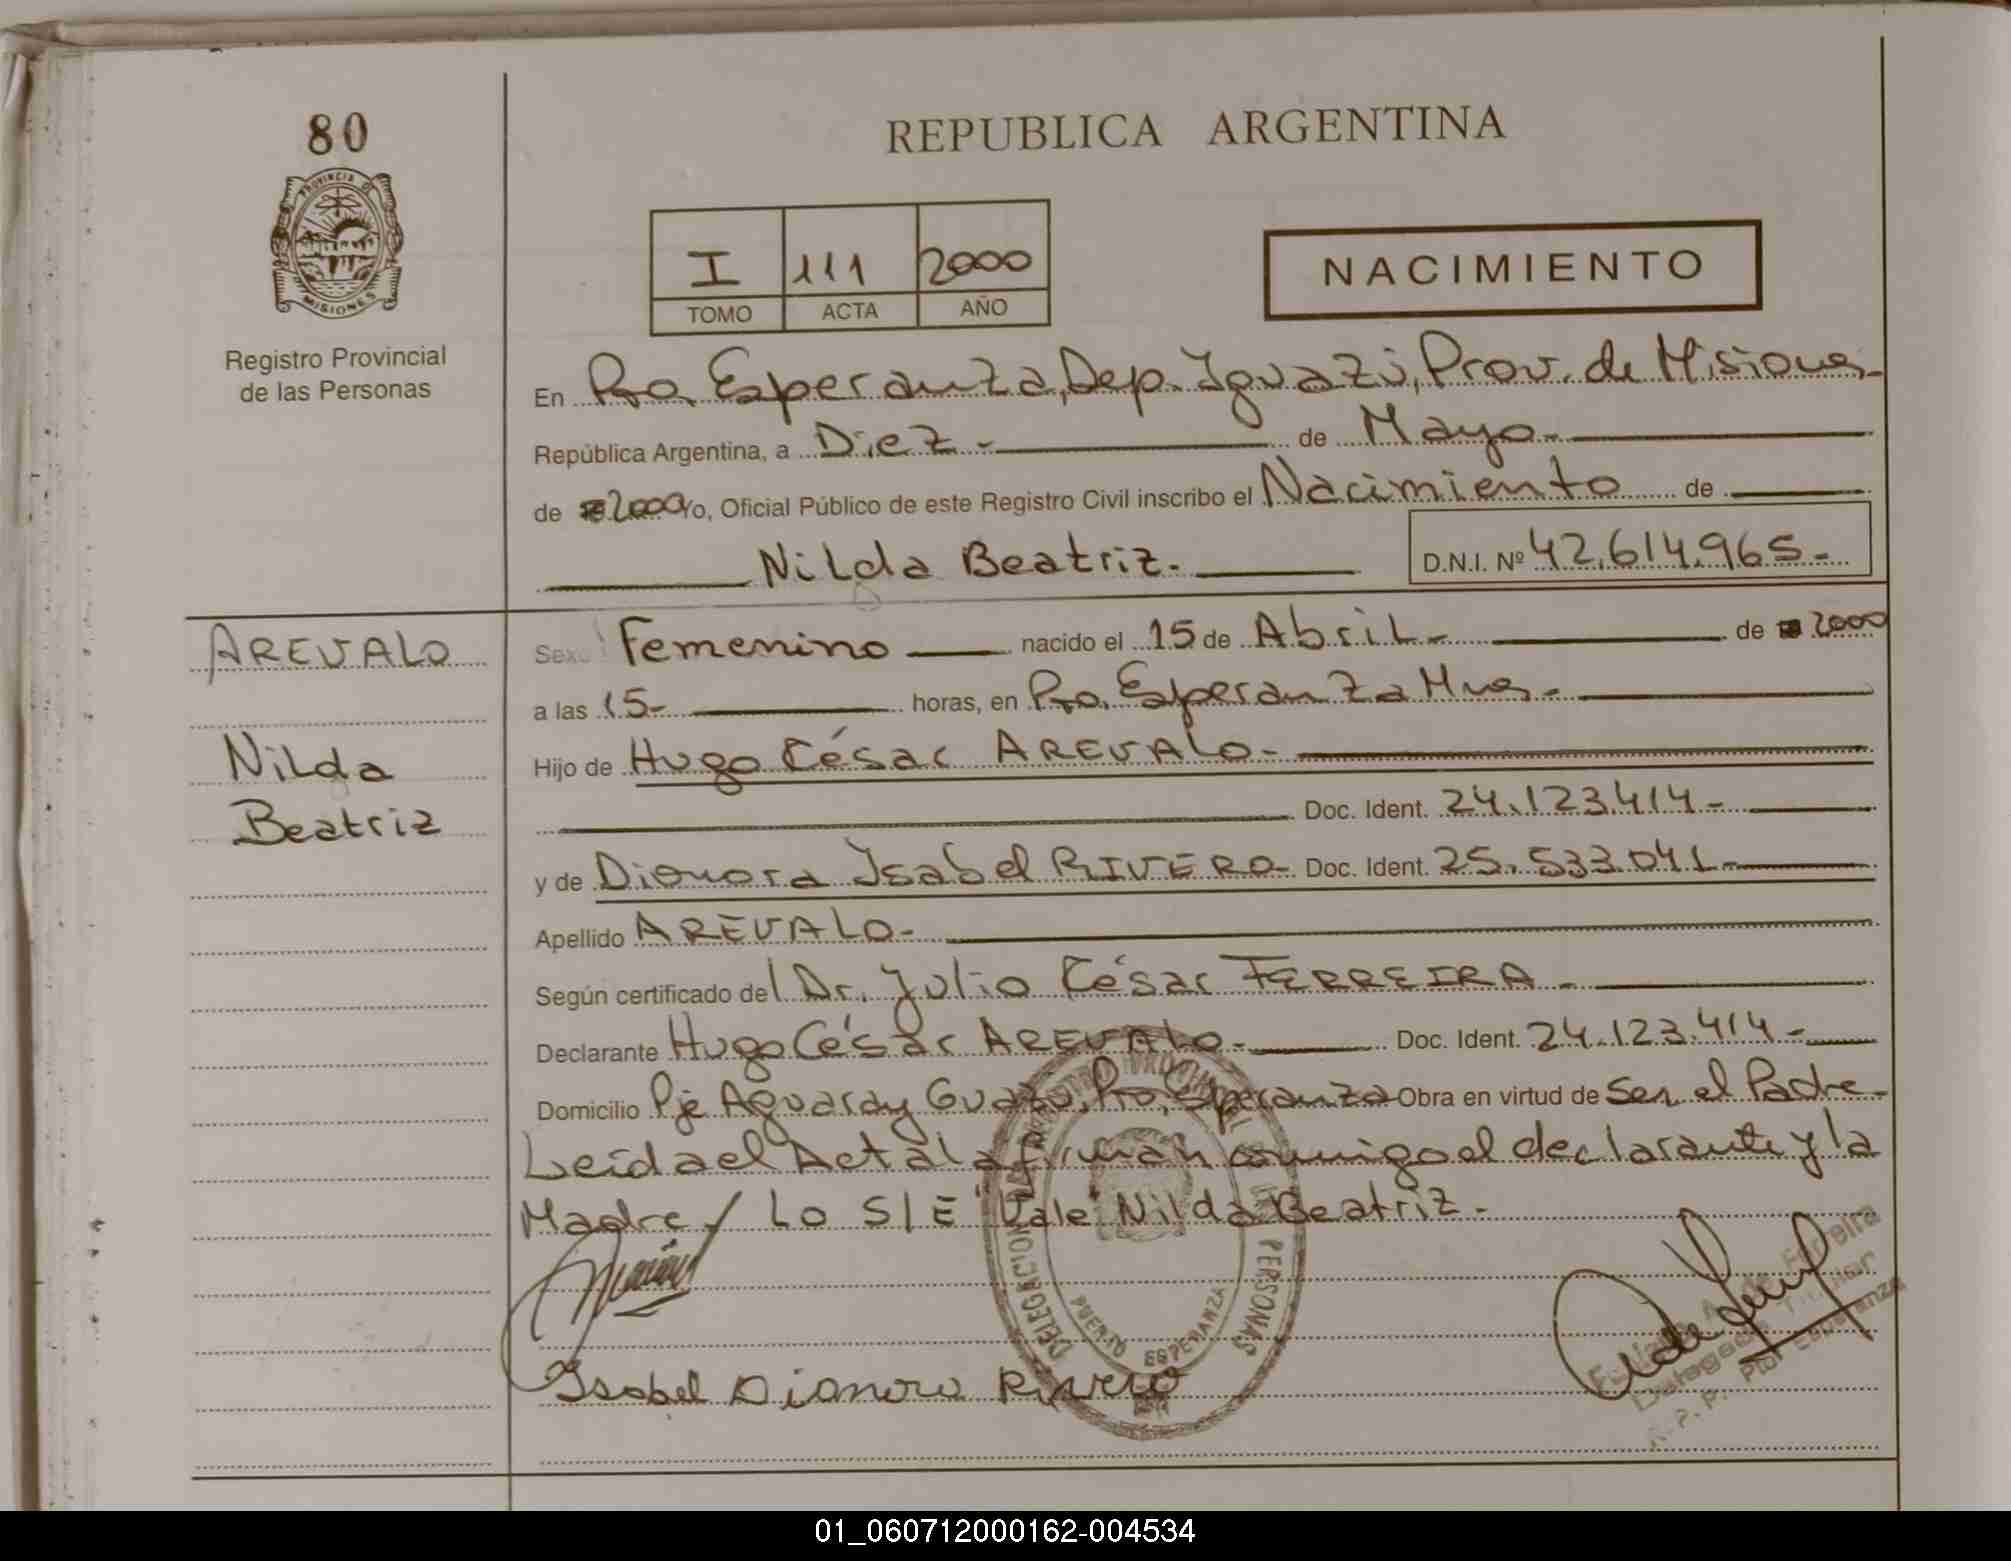 80
REPUBLICA ARGENTINA
PROVINCIA DE
MISIONES
Registro Provincial
de las Personas
I 111 2000
TOMO ACTA AÑO
NACIMIENTO
En Pto. Esperanza, Dep. Iguazú, Prov. de Misiones.-
República Argentina, a Diez.- de Mayo.-
de 2000 Yo, Oficial Público de este Registro Civil inscribo el Nacimiento de
Nilda Beatriz.- D.N.I. Nº 42.614.965.-
AREVALO
Nilda
Beatriz
Sexo Femenino nacido el 15 de Abril.- de 2000
a las 15.- horas, en Pto. Esperanza Mnes.-
Hijo de Hugo César AREVALO.-
Doc. Ident. 24.123.414.-
y de Dionora Ysabel RIVERO.- Doc. Ident. 25.533.041.-
Apellido AREVALO.-
Según certificado del Dr. Julio César FERREIRA.-
Declarante Hugo César AREVALO.- Doc. Ident. 24.123.414.-
Domicilio Pje Aguaray Guazú, Pto. Esperanza Obra en virtud de Ser el Padre.-
Leida el Acta la firman conmigo el declarante y la
Madre/ Lo S/E "Vale" Nilda Beatriz.-
DELEGACION PERSONAS
PUERTO ESPERANZA
Isabel Dionora Rivero
de Ferreira
Delegada Titular
R.P.P. Pto. Esperanza
01_060712000162-004534